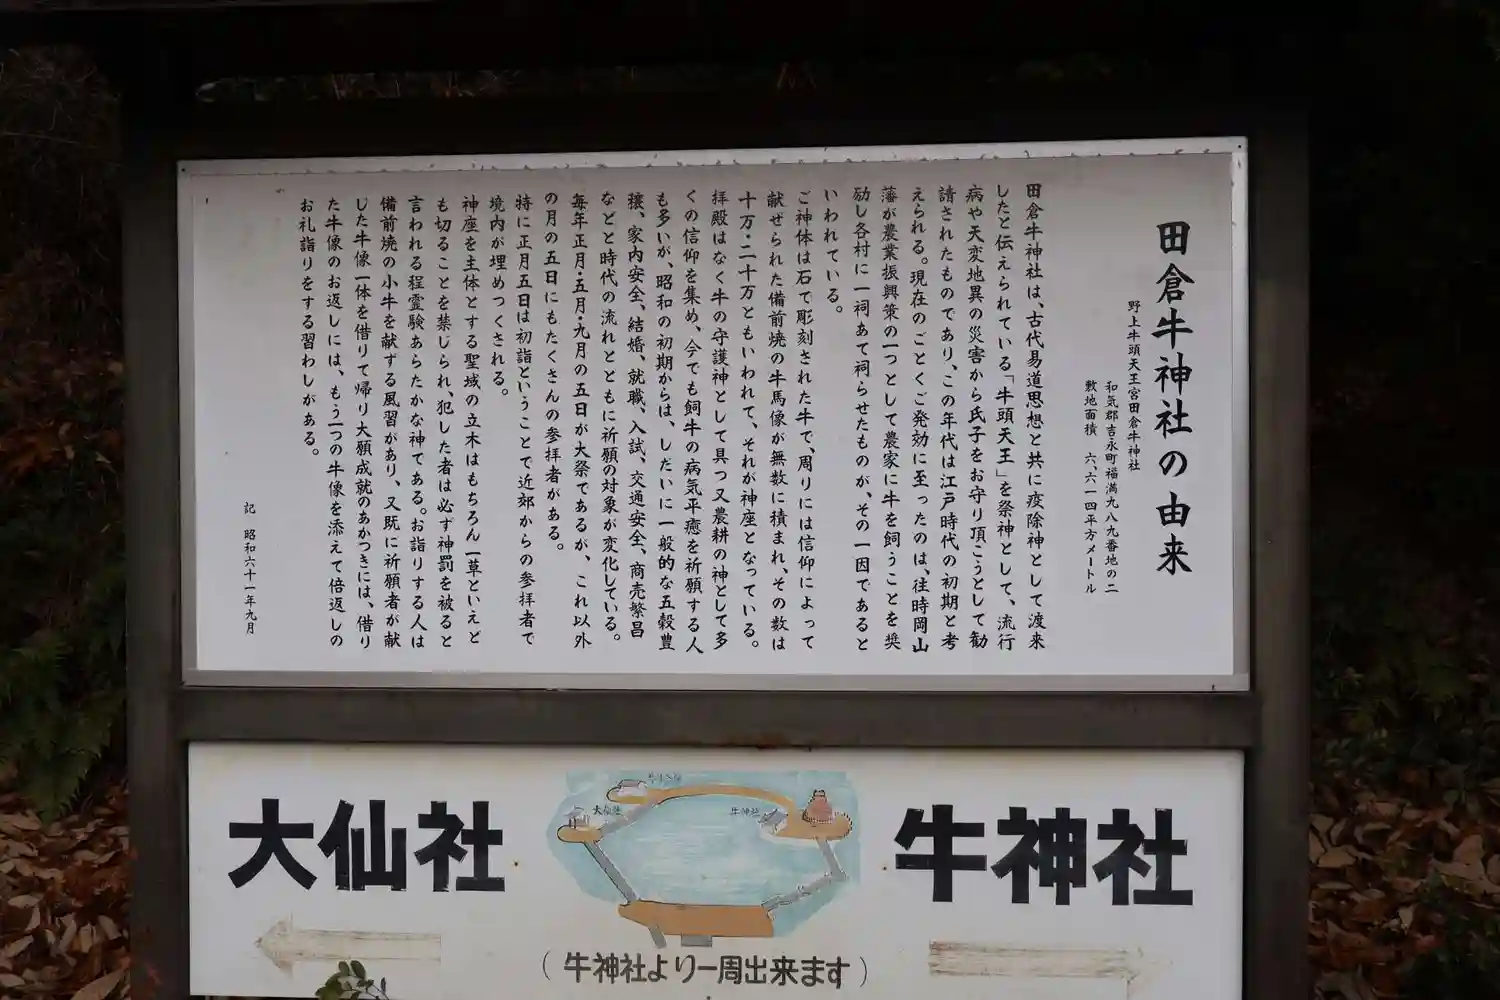 田倉牛神社の由来
野上牛頭天王宮田倉牛神社
和気郡吉永町福満九八九番地の二
敷地面積　六、六一四平方メートル
田倉牛神社は、古代易道思想と共に疫除神として渡来
したと伝えられている「牛頭天王」を祭神として、流行
病や天変地異の災害から氏子をお守り頂こうとして勧
請されたものであり、この年代は江戸時代の初期と考
えられる。現在のごとくご発効に至ったのは、往時岡山
藩が農業振興策の一つとして農家に牛を飼うことを奨
励し各村に一祠あて祠らせたものが、その一因であると
いわれている。
ご神体は石で彫刻された牛で、周りには信仰によって
献ぜられた備前焼の牛馬像が無数に積まれ、その数は
十万・二十万ともいわれて、それが神座となっている。
拝殿はなく牛の守護神として具つ又農耕の神として多
くの信仰を集め、今でも飼牛の病気平癒を祈願する人
も多いが、昭和の初期からは、しだいに一般的な五穀豊
穣、家内安全、結婚、就職、入試、交通安全、商売繁昌
などと時代の流れとともに祈願の対象が変化している。
毎年正月・五月・九月の五日が大祭であるが、これ以外
の月の五日にもたくさんの参拝者がある。
特に正月五日は初詣ということで近郊からの参拝者で
境内が埋めつくされる。
神座を主体とする聖域の立木はもちろん一草といえど
も切ることを禁じられ、犯した者は必ず神罰を被ると
言われる程霊験あらたかな神である。お詣りする人は
備前焼の小牛を献ずる風習があり、又既に祈願者が献
じた牛像一体を借りて帰り大願成就のあかつきには、借り
た牛像のお返しには、もう一つの牛像を添えて倍返しの
お礼詣りをする習わしがある。
記　昭和六十一年九月
大仙社
大仙社
牛神社
牛神社
(牛神社より一周出来ます)